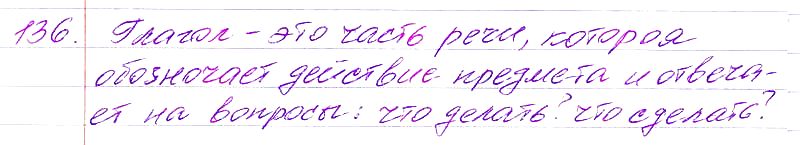 136. Глагол - это часть речи, которая
обозночает действие предмета и отвеча-
ет на вопросы: что делать? что сделать?